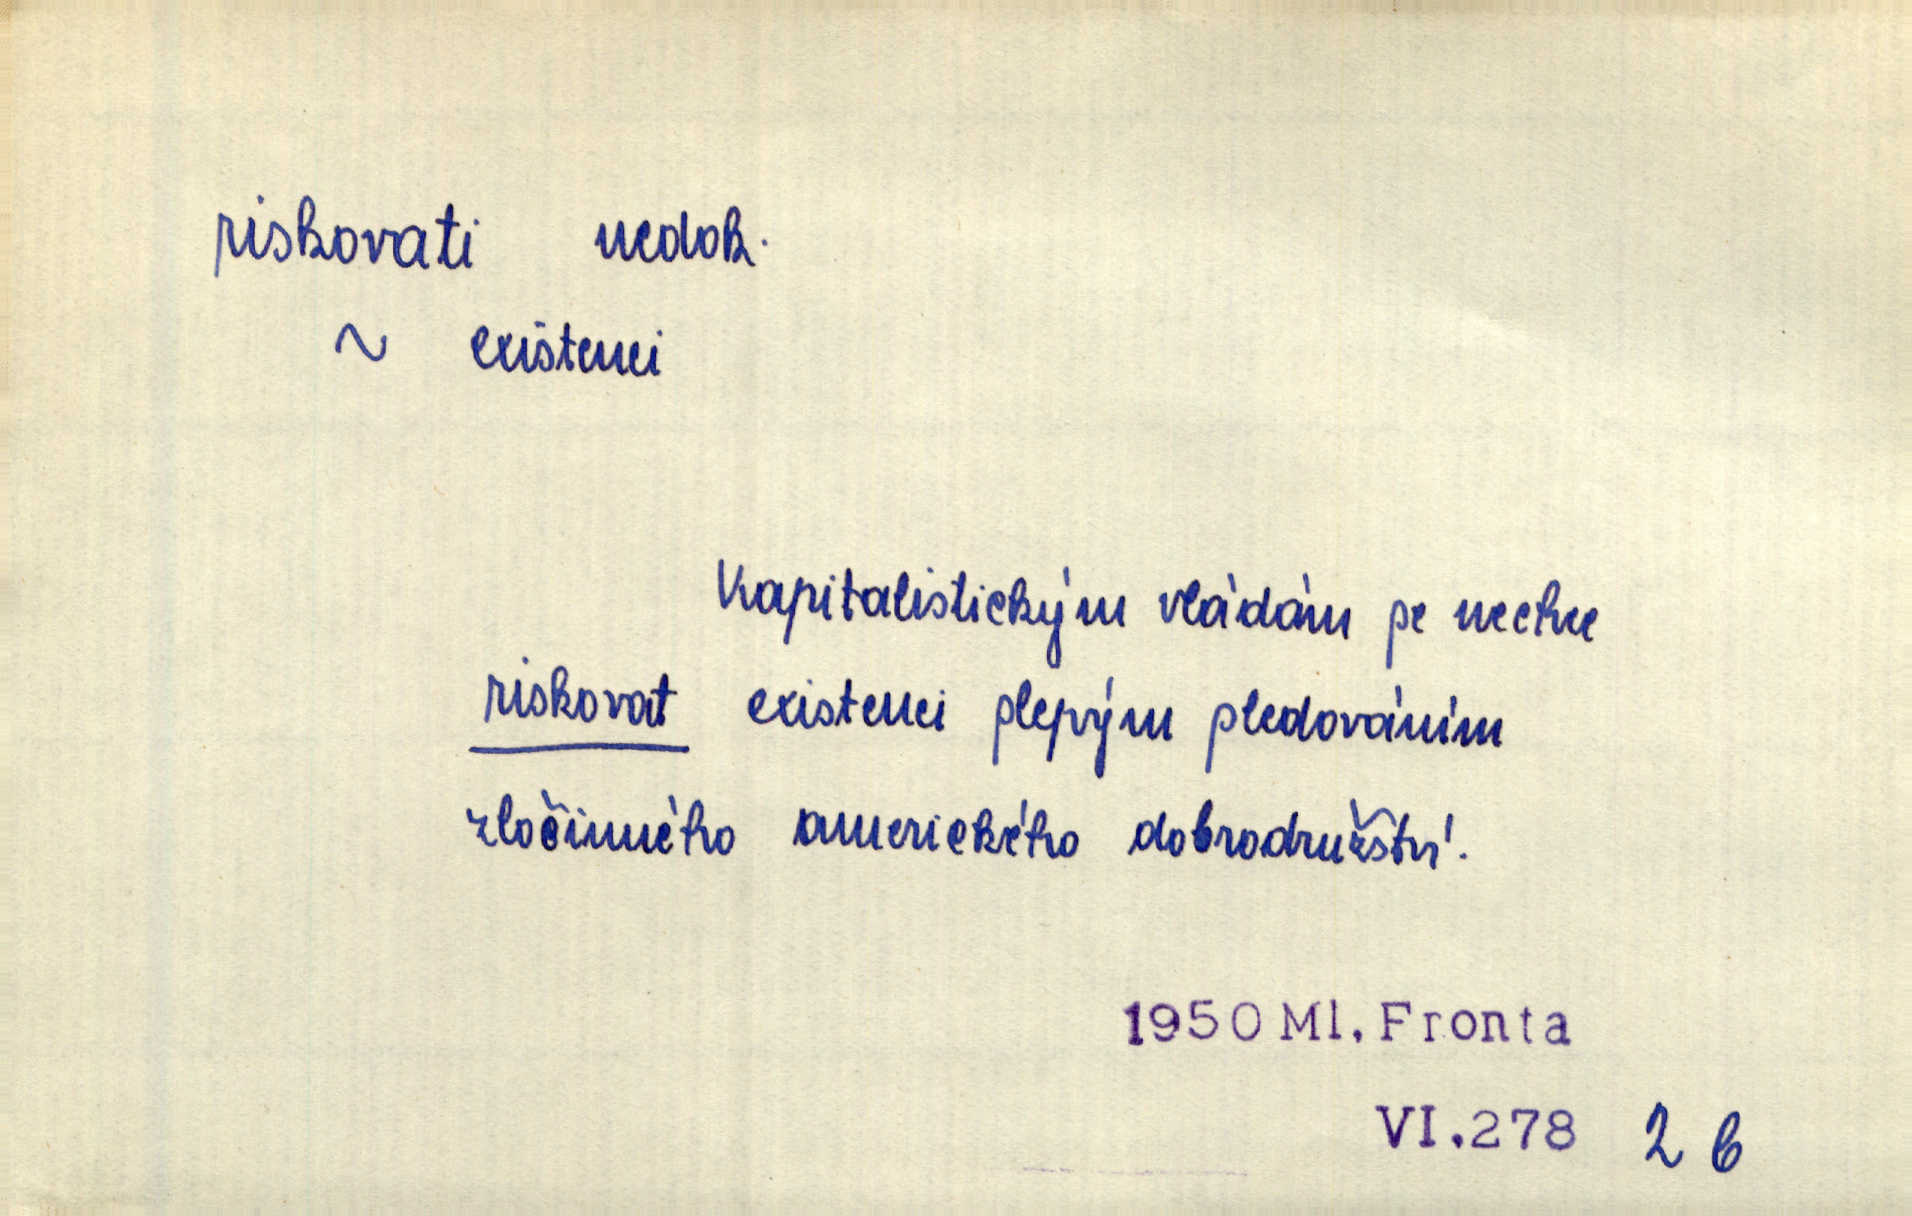 riskovati nedok.
~ existenci
Kapitalistickým vládám se nechce
riskovat existenci slepým sledováním
zločinného amerického dobrodružství.
1950 Ml. Fronta
VI.278 2 b